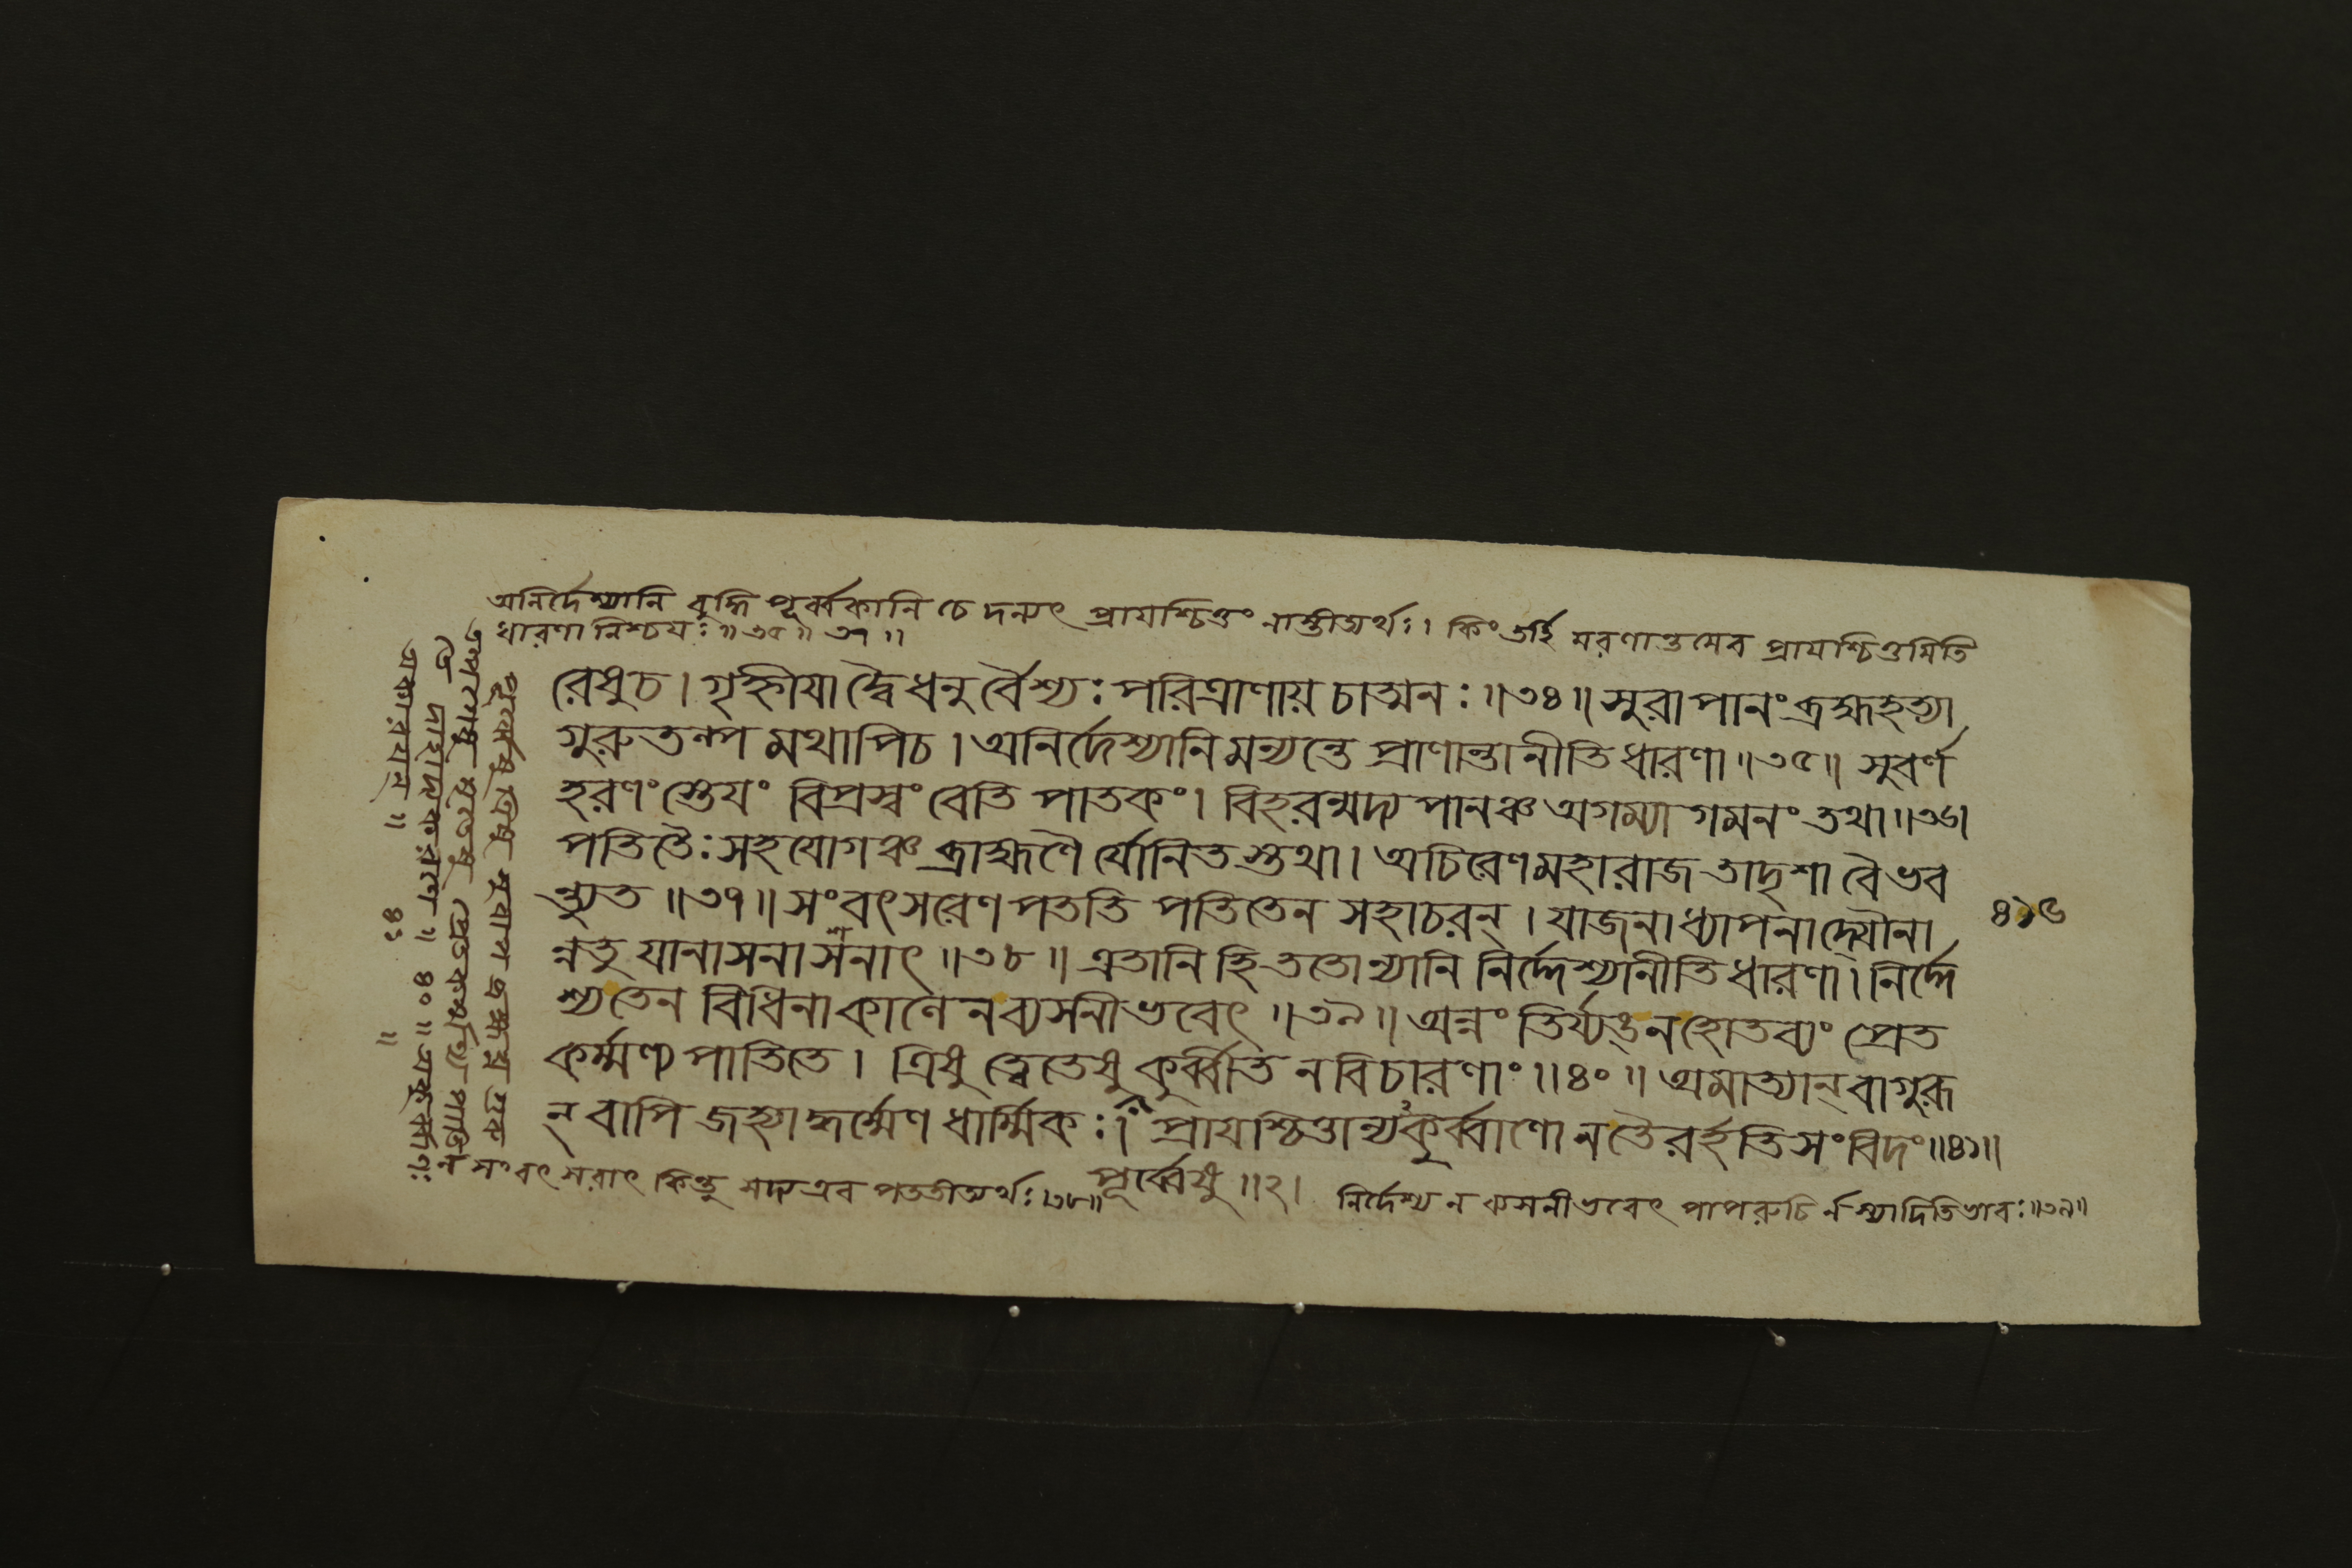 অনির্দেশ্যানি বুদ্ধি পূর্ব্বকানি চে দন্যৎ প্রাযশ্চিত্তং নাস্তীত্যর্থঃ। কিং তর্হি মরণান্তমেব প্রাযশ্চিত্তমিতি
ধারণা নিশ্চযঃ॥ ৩৫॥ ৩৭॥
রেষুচ। গৃহ্নীযা দ্বৈধনুর্বৈশ্যঃ পরিত্রাণায় চাত্মনঃ॥৩৪॥ সুরাপানং ব্রহ্মহত্যা
গুরুতল্প মথাপিচ। অনির্দেশ্যানি মন্যন্তে প্রাণান্তানীতি ধারণা॥৩৫॥ সুবর্ণ
হরণং স্তেযং বিপ্রস্বং বেতি পাতকং। বিহরন্মদ্য পানঞ্চ অগম্যা গমনং তথা॥৩৬॥
পতিতৈঃ সহযোগঞ্চ ব্রাহ্মণৈ র্যোনিত স্তথা। অচিরেণ মহারাজ তাদৃশা বৈ ভব
ন্ত্যুত॥৩৭॥ সংবৎসরেণ পততি পতিতেন সহাচরন্। যাজনাধ্যাপনাদ্যৌনা
ন্নতু যানাসনাসনাৎ॥৩৮॥ এতানি হি ততোন্যানি নির্দ্দেশ্যানীতি ধারণা। নির্দ্দে
শ্যতেন বিধিনা কালেন ব্যসনী ভবেৎ॥৩৯॥ অন্নং তির্য্যঙ্ন হোতব্যং প্রেত
কর্ম্মণ্য পাতিতে। ত্রিষু ত্বেতেষু কুর্ব্বীত ন বিচারণাং॥৪০॥ অমাত্যান্ বা গুরূ
ন্ বাপি জহ্যাদ্ধর্ম্মেণ ধার্ম্মিকঃ। প্রাযশ্চিত্তান্যকুর্ব্বাণো ন তৈরর্হতি সংবিদং॥৪১॥
৪১৬
ন সংবৎসরাৎ কিন্তু সদ্য এব পততীত্যর্থঃ।৩৮॥
পূর্ব্বেষু॥২।
নির্দেশ্য ন ব্যসনী ভবেৎ পাপরুচি র্ন স্যাদিতিভাবঃ॥৩৯॥
পূর্ব্বেষু ত্রিষু সুরাপ ব্রহ্মঘ্ন গুরু
তল্পগেষু মৃতেষু প্রেতকর্মণ্য পাতি
তে দাহাদ্যকরণে॥ ৪০॥ অকুর্ব্বাণঃ
অকারযন্॥ ৪১॥